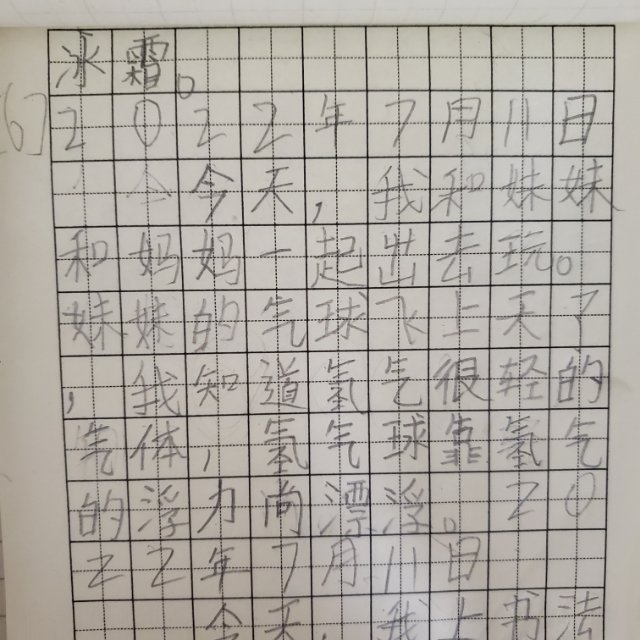 冰霜。
[6]
2022年7月11日
今天，我和妹妹
和妈妈一起出去玩。
妹妹的气球飞上天了
，我知道氢气很轻的
气体，氢气球靠氢气
的浮力尚漂浮。20
22年7月11日
今天，我上书法